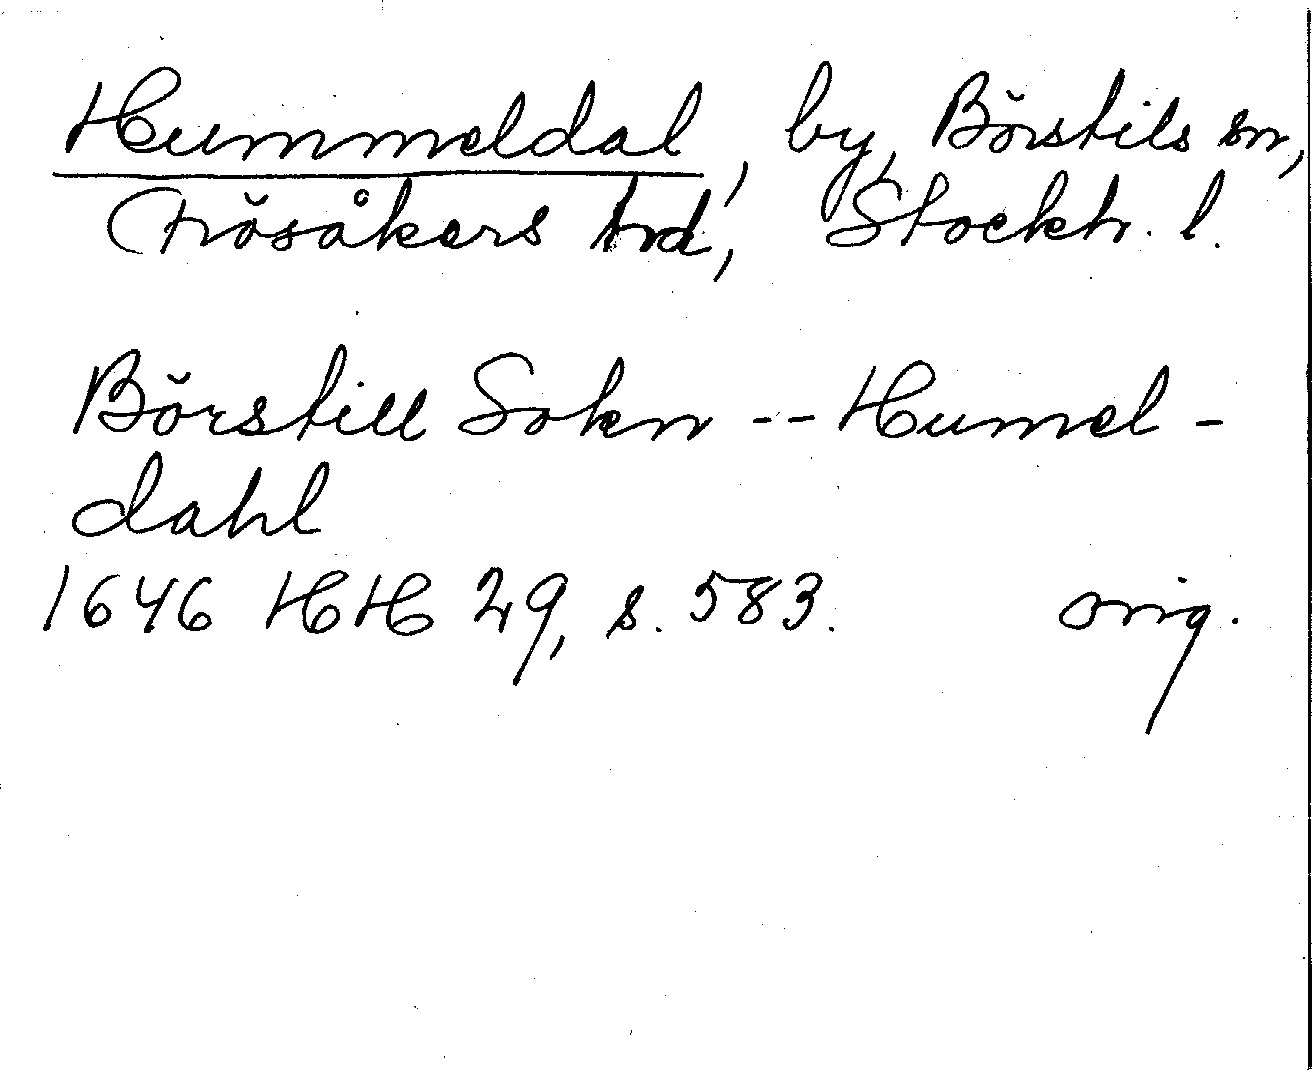 Hummeldal, by, Börstils sn,
Frösåkers hd, Stockh. l.
Börstill Sokn -- Humel-
dahl
1646 HH 29, s. 583. orig.